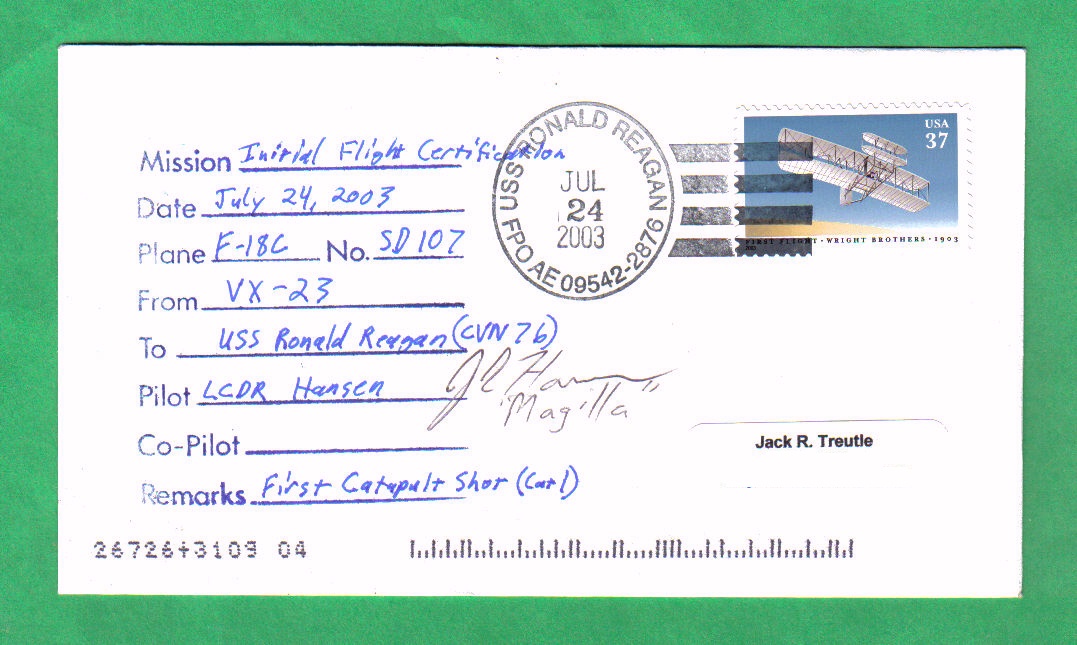 Mission Initial Flight Certification
Date July 24, 2003
Plane F-18C No. SD 107
From VX-23
To USS Ronald Reagan (CVN 76)
Pilot LCDR Hansen
"Magilla"
Co-Pilot
Remarks First Catapult Shot (Cat 1)
USS RONALD REAGAN
JUL
24
2003
FPO AE 09542-2876
USA
37
FIRST FLIGHT · WRIGHT BROTHERS · 1903
2003
Jack R. Treutle
26726+3109 04